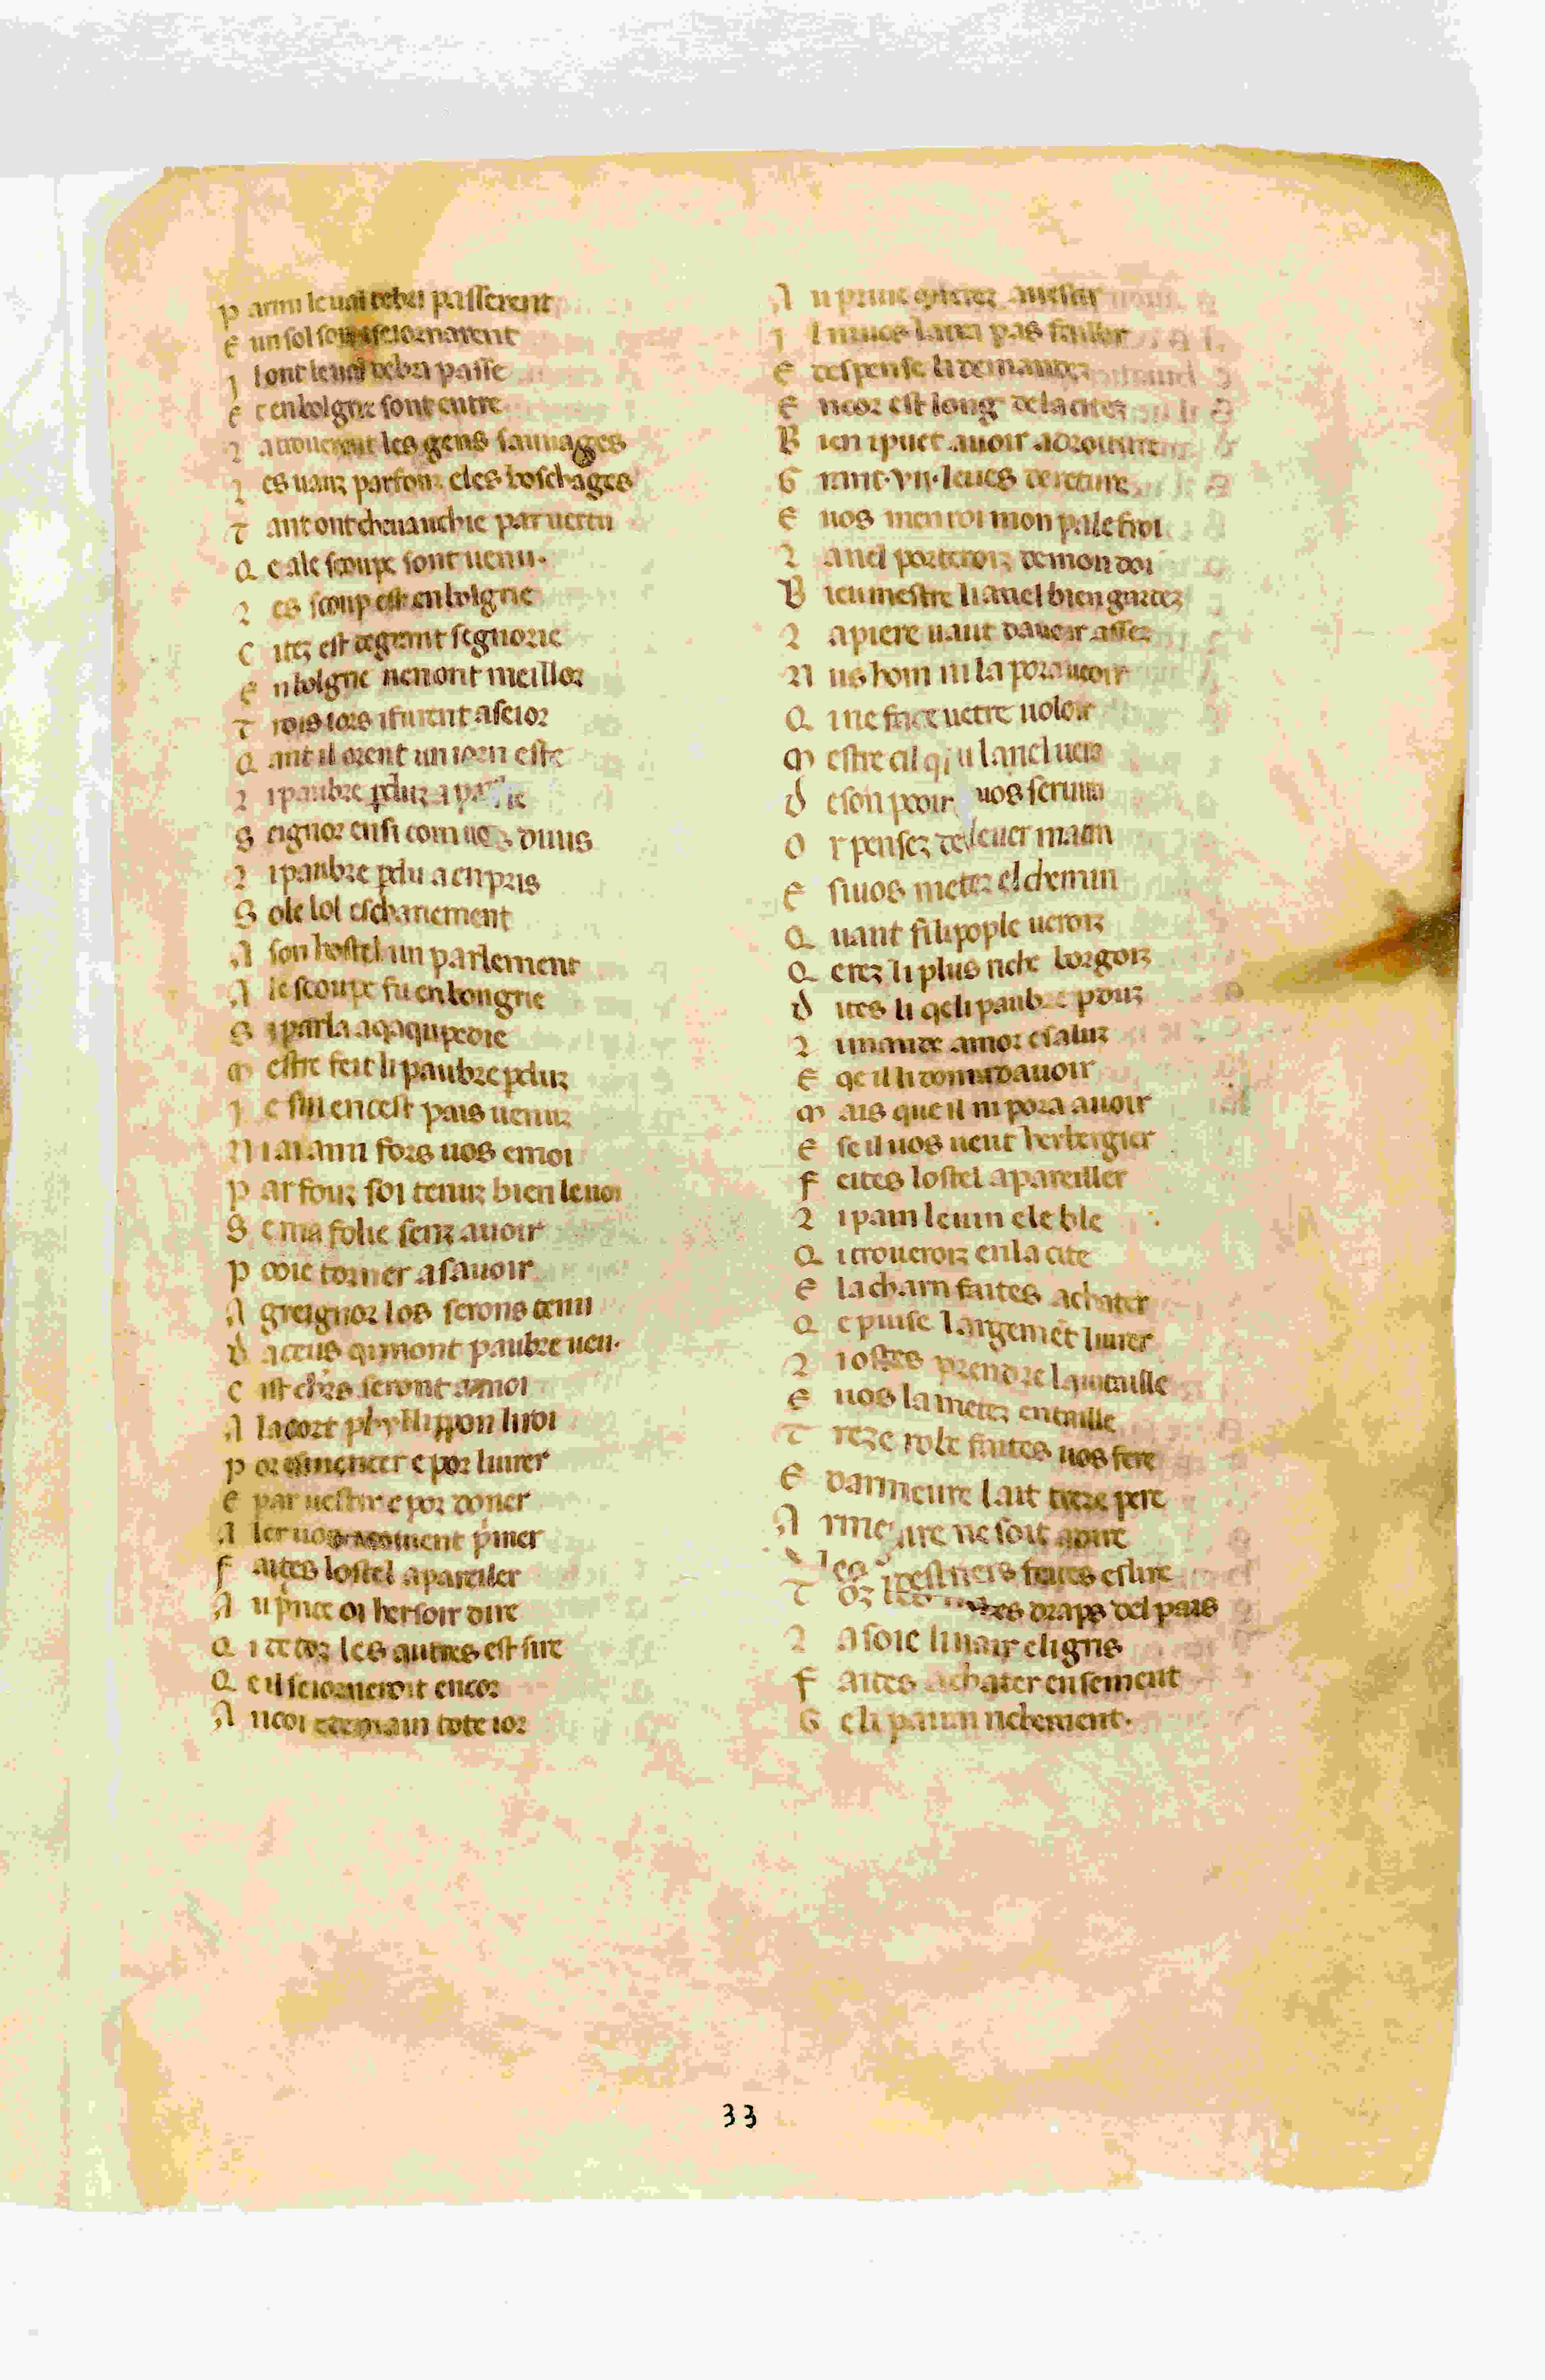 P armi le val de bri passerent
E un sol soir iseiornarent
I l ont le val de bri passe
E t en bolgrie sont entre
L a trouerent les gens sauuages
L es uauz parfonz e les boschages
T ant ont cheuauchie par uertu
Q e a le scoupe sont uenu.
L es scoup est en bolgrie
C itez est de grant segnorie
E n bolgrie nen ont meillor
T rois iors i furent a seior
Q ant il orent un iorn este
L i paubre pduz a parle
S eignor ensi com ie uos diuis
L i paubre pdu a enpris
S ole lol eschariement
A son hostel un parlement
A le scoupe fu en bongrie
S i parla a qaqupedie
M estre feit li paubre pduz
I e sui en cest pais uenuz
N i ai ami fors uos e moi
P ar fouz soi tenuz bien le uoi
S e ma folie senz auoir
P ooie torner a sauoir
A greignor los serons tenu
D a ceus qi mont paubre ueu.
C ist chrs seront a moi
A la cort phyllippon li roi
P or comencer e por liurer
E par uestir e por doner
A ler uos couient pmer
F aites lostel apareiler
A u pnce oi hersoir dire
Q i de toz les autres est sire
Q e il seiorneroit encor
A ncoi e demain tote ior
A u prime
I l
E despense li demandez
E ncor est long de la citez
B ien i puet auoir a droiture
G rant .vii. leues de
E uos menroi mon palefroi
L anel porteroiz de mon doi
B ieu mestre li anel bien gardez
L a piere uaut dauoir assez
N us hom ni la pora ueoir
Q i ne face uetre uoloir
M estre cil qi u lanel ueis
D e son pooir uos seruira
O r pensez de leuer matin
E si uos metez el chemin
Q uant filipople ueroiz
Q erez li plus riche borgoiz
D ites li qe li paubre pduz
L i mande amor e saluz
E qe il li doint de auoir
M ais que il ni pora auoir
E se il uos ueut herbergier
F eites lostel apareiller
L i pain le uin e le ble
Q i troueroiz en la cite
E la charn faites achater
Q e puise largemet liurer
L i ostes prendre la uitaille
E uos la metez en taille
T reze robe faites uos fere
E darmeure lait treze pere
A rmeure ne soit
les destriers faites eslire
T oz les autres draps del pais
L a soie li uair e li gris
F aites achater ensement
G e li paurai richement.
33